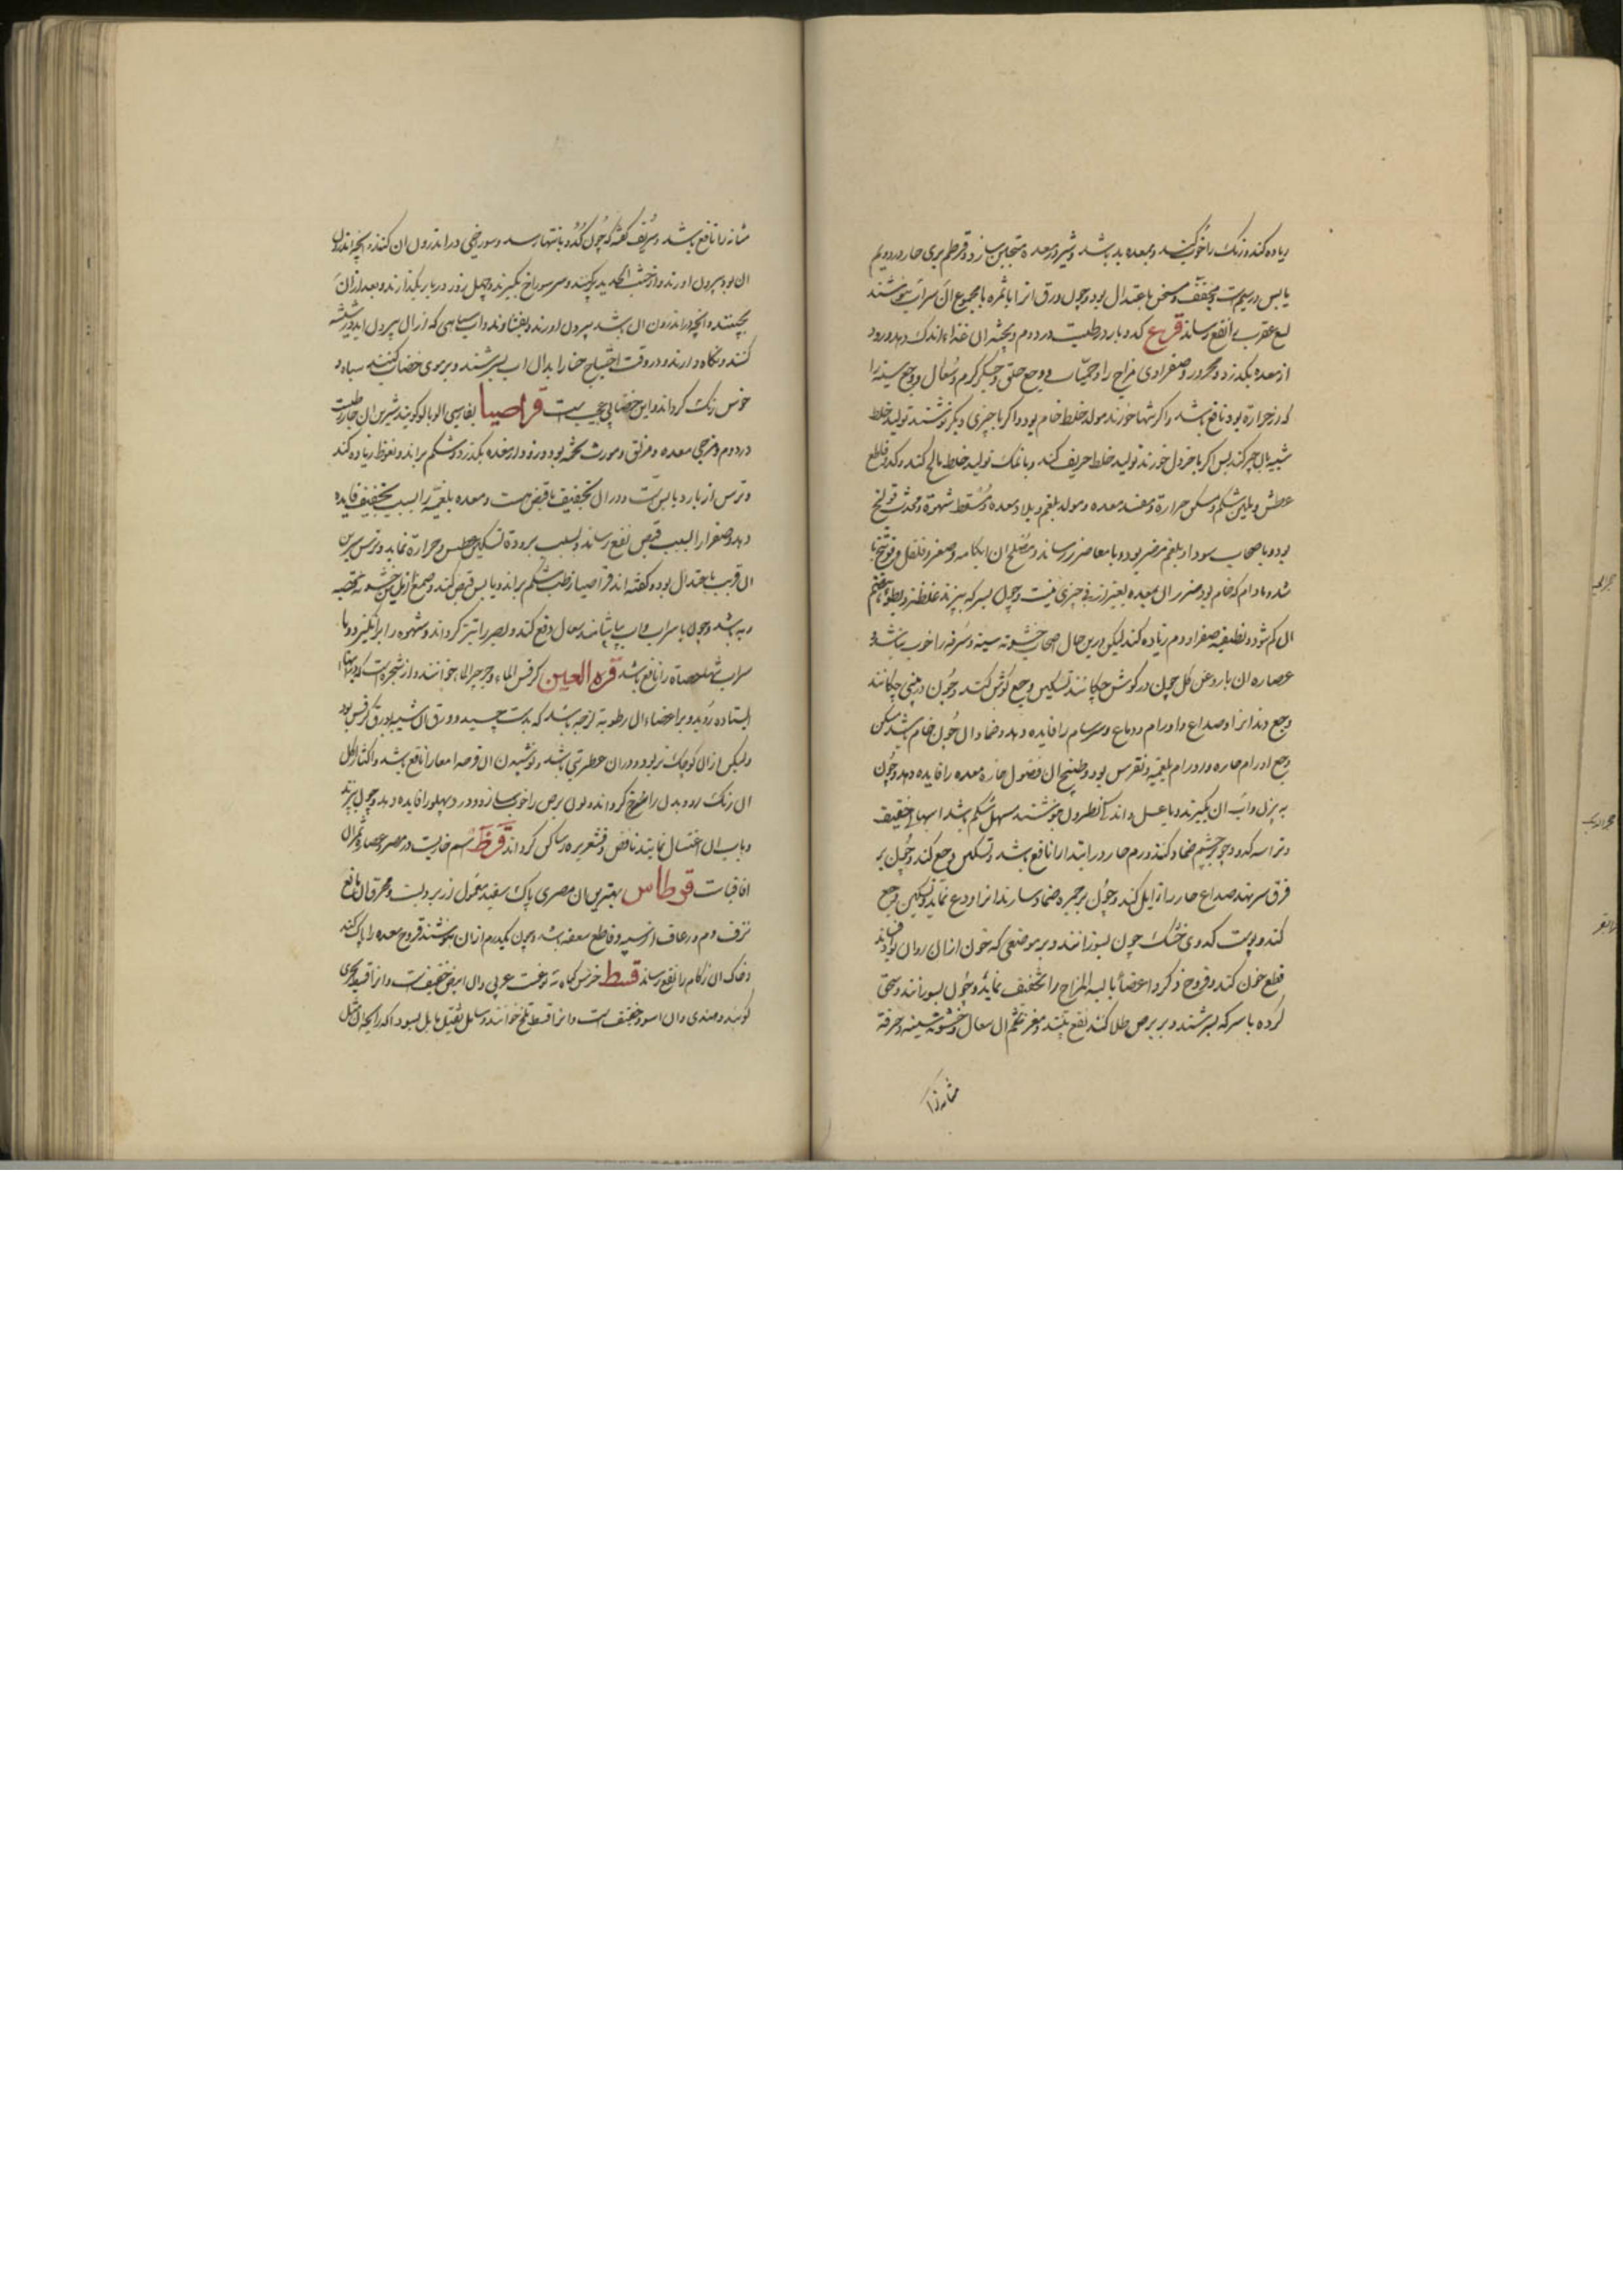 زیاده کند و رنک را خوب کند و بمعده بد باشد و شیر در معده متجبن سازد و قرطم بری حار در دویم
یابس در سیوم است و مجفف و مسخن باعتدال بود و چون ورق انرا با ثمره یا مجموع ان بشراب بنوشند
لسع عقرب را نفع رساند قرع کدو بارد رطبست در دوم و پخته ان غذاء اندک دهد و زود
از معده بکذرد و محرور و صفراوی مزاج را و حمیات و وجع حلق و جکر کرم و سعال و وجع سینه را
که از حرارة بود نافع باشد و اکر تنها خورند مولد خلط خام بود و اکر با چیزی دیکر نوشند تولید خلط
شبیه بان چیز کند پس اکر با خردل خورند تولید خلط حریف کند و با نمک تولید خلط مالح کند و کدو قاطع
عطش و ملین شکم و مسکن حرارة و مفسد معده و مولد بلغم و بلاد معده و مسقط شهوة و محدث قولنج
بود و باصحاب سودا و بلغم مضر بود و بامعا ضرر رساند و مصلح ان ابکامه و صعتر و فلفل و فوتنج با
شد و مادام که خام بود ضرر ان بمعده بغیر از قی چیزی نیست و چون بسرکه بپزند غلظ و بطوء هضم
ان کم شود و تطفیه صفرا و دم زیاده کند لیکن درین حال اصحاب خشونة سینه و سرفه را خوب نباشد و
عصاره ان با روغن کل چون در کوش چکانند تسکین وجع کوش کند و چون در بینی چکانند
وجع دندانرا و صداع و اورام دماغ و سرسام را فایده دهد و ضماد ان چون خام باشد مسکن
وجع اورام حاره و اورام بلغمیه و نقرس بود و طبیخ ان فضول حاره معده را فایده دهد و چون
به پزند و اب ان بکیرند و با عسل و اندک نطرون بنوشند مسهل شکم باشد اسهالی خفیف
و تراشه کدو چون بر چشم ضماد کنند ورم حار در ابتدا را نافع باشد و تسکین وجع کند و چون بر
فرق سر نهند صداع حار را زایل کند و چون بر جمره ضماد سازند انرا ودع نماید و تسکین وجع
کند و پوست کدوی خشک چون بسوزانند و بر موضعی که خون ازان روان بود افشانند
قطع خون کند و قروح ذکر و اعضاء یابسه المزاج را تخفیف نماید و چون بسوزانند و سحق
کرده با سرکه بسرشند و بر برص طلا کنند نفع بخشد و مغز تخم ان سعال و خشونة سینه و حرقة
مثانه را
مثانه را نافع باشد و شریف کفته که چون کدو بانتها رسد و سوراخی در اندرون ان کنند و انچه اندرون
ان بود بیرون اورند و از خبث الحدید پر کنند و سر سوراخ بکیرند و چهل روز در بار بکذارند و بعد ازان
بچینند و انچه در اندرون ان باشد بیرون اورند و بفشارند و اب سیاهی که ازان بیرون اید در شیشه
کنند و نکاه دارند و در وقت احتیاج حنا را بدان اب بسرشند و بر موی خضاب کنند سیاه و
خوش رنک کرداند و این خضابی عجیب است قراصیا بفارسی الوبالو کویند شیرین ان حار رطبست
در دوم و مرخی معده و مزلق و مورث تخمه بود و زود از معده بکذرد و شکم براند و نعوظ زیاده کند
و ترش ان بارد یابس است و در ان تخفیف با قبض هست و معده بلغمیه را بسبب تخفیف فایده
دهد و صفرا را بسبب قبض نفع رساند و بسبب برودة تسکین عطش و حرارة نماید و ترش شیرین
ان قریب باعتدال بود و کفته اند قراصیا رطب شکم براند و یابس قبض کند و صمغ ان ملین خشونة قصبه
ریه باشد و چون با شراب و اب بیاشامند سعال دفع کند و بصر را تیز کرداند و شهوة را برانکیزد و با
شراب تنها حصاة را نافع باشد قرة العین کرفس الماء و جرجیر الماء خوانند و ان شجره است که در ابهای
ایستاده روید و بر اعضاء ان رطوبة لزجه باشد که بدست چسبد و ورق ان شبیه بورق کرفس بود
ولیکن ازان کوچک تر بود و در ان عطریتی باشد و نوشیدن ان قرحه امعا را نافع باشد و اکثار اکل
ان رنک رو و بدن را سرخ کرداند و لون برص را خوب سازد و درد پهلو را فایده دهد و چون بپزند
و باب ان اغتسال نمایند نافض و قشعریره را ساکن کرداند قرظ اسم خاریست در مصر و عصاره ثمر ان
اقاقیاست قرطاس بهترین ان مصری پاک سفید معمول از بردیست و محرق ان مانع
نزف دم و رعاف از سینه و قاطع معفه باشد و چون یکدرم ازان بنوشند قروح معده را پاک کند
و خاک ان زکام را نفع رساند قسط جنس است عربی و ان ابیض خفیفست و انرا قسط بحری
کویند و هندی و ان اسود خفیف است و انرا قسط تلخ خوانند و سایل ثقیل مایل بسواد که رایحه ان مثل